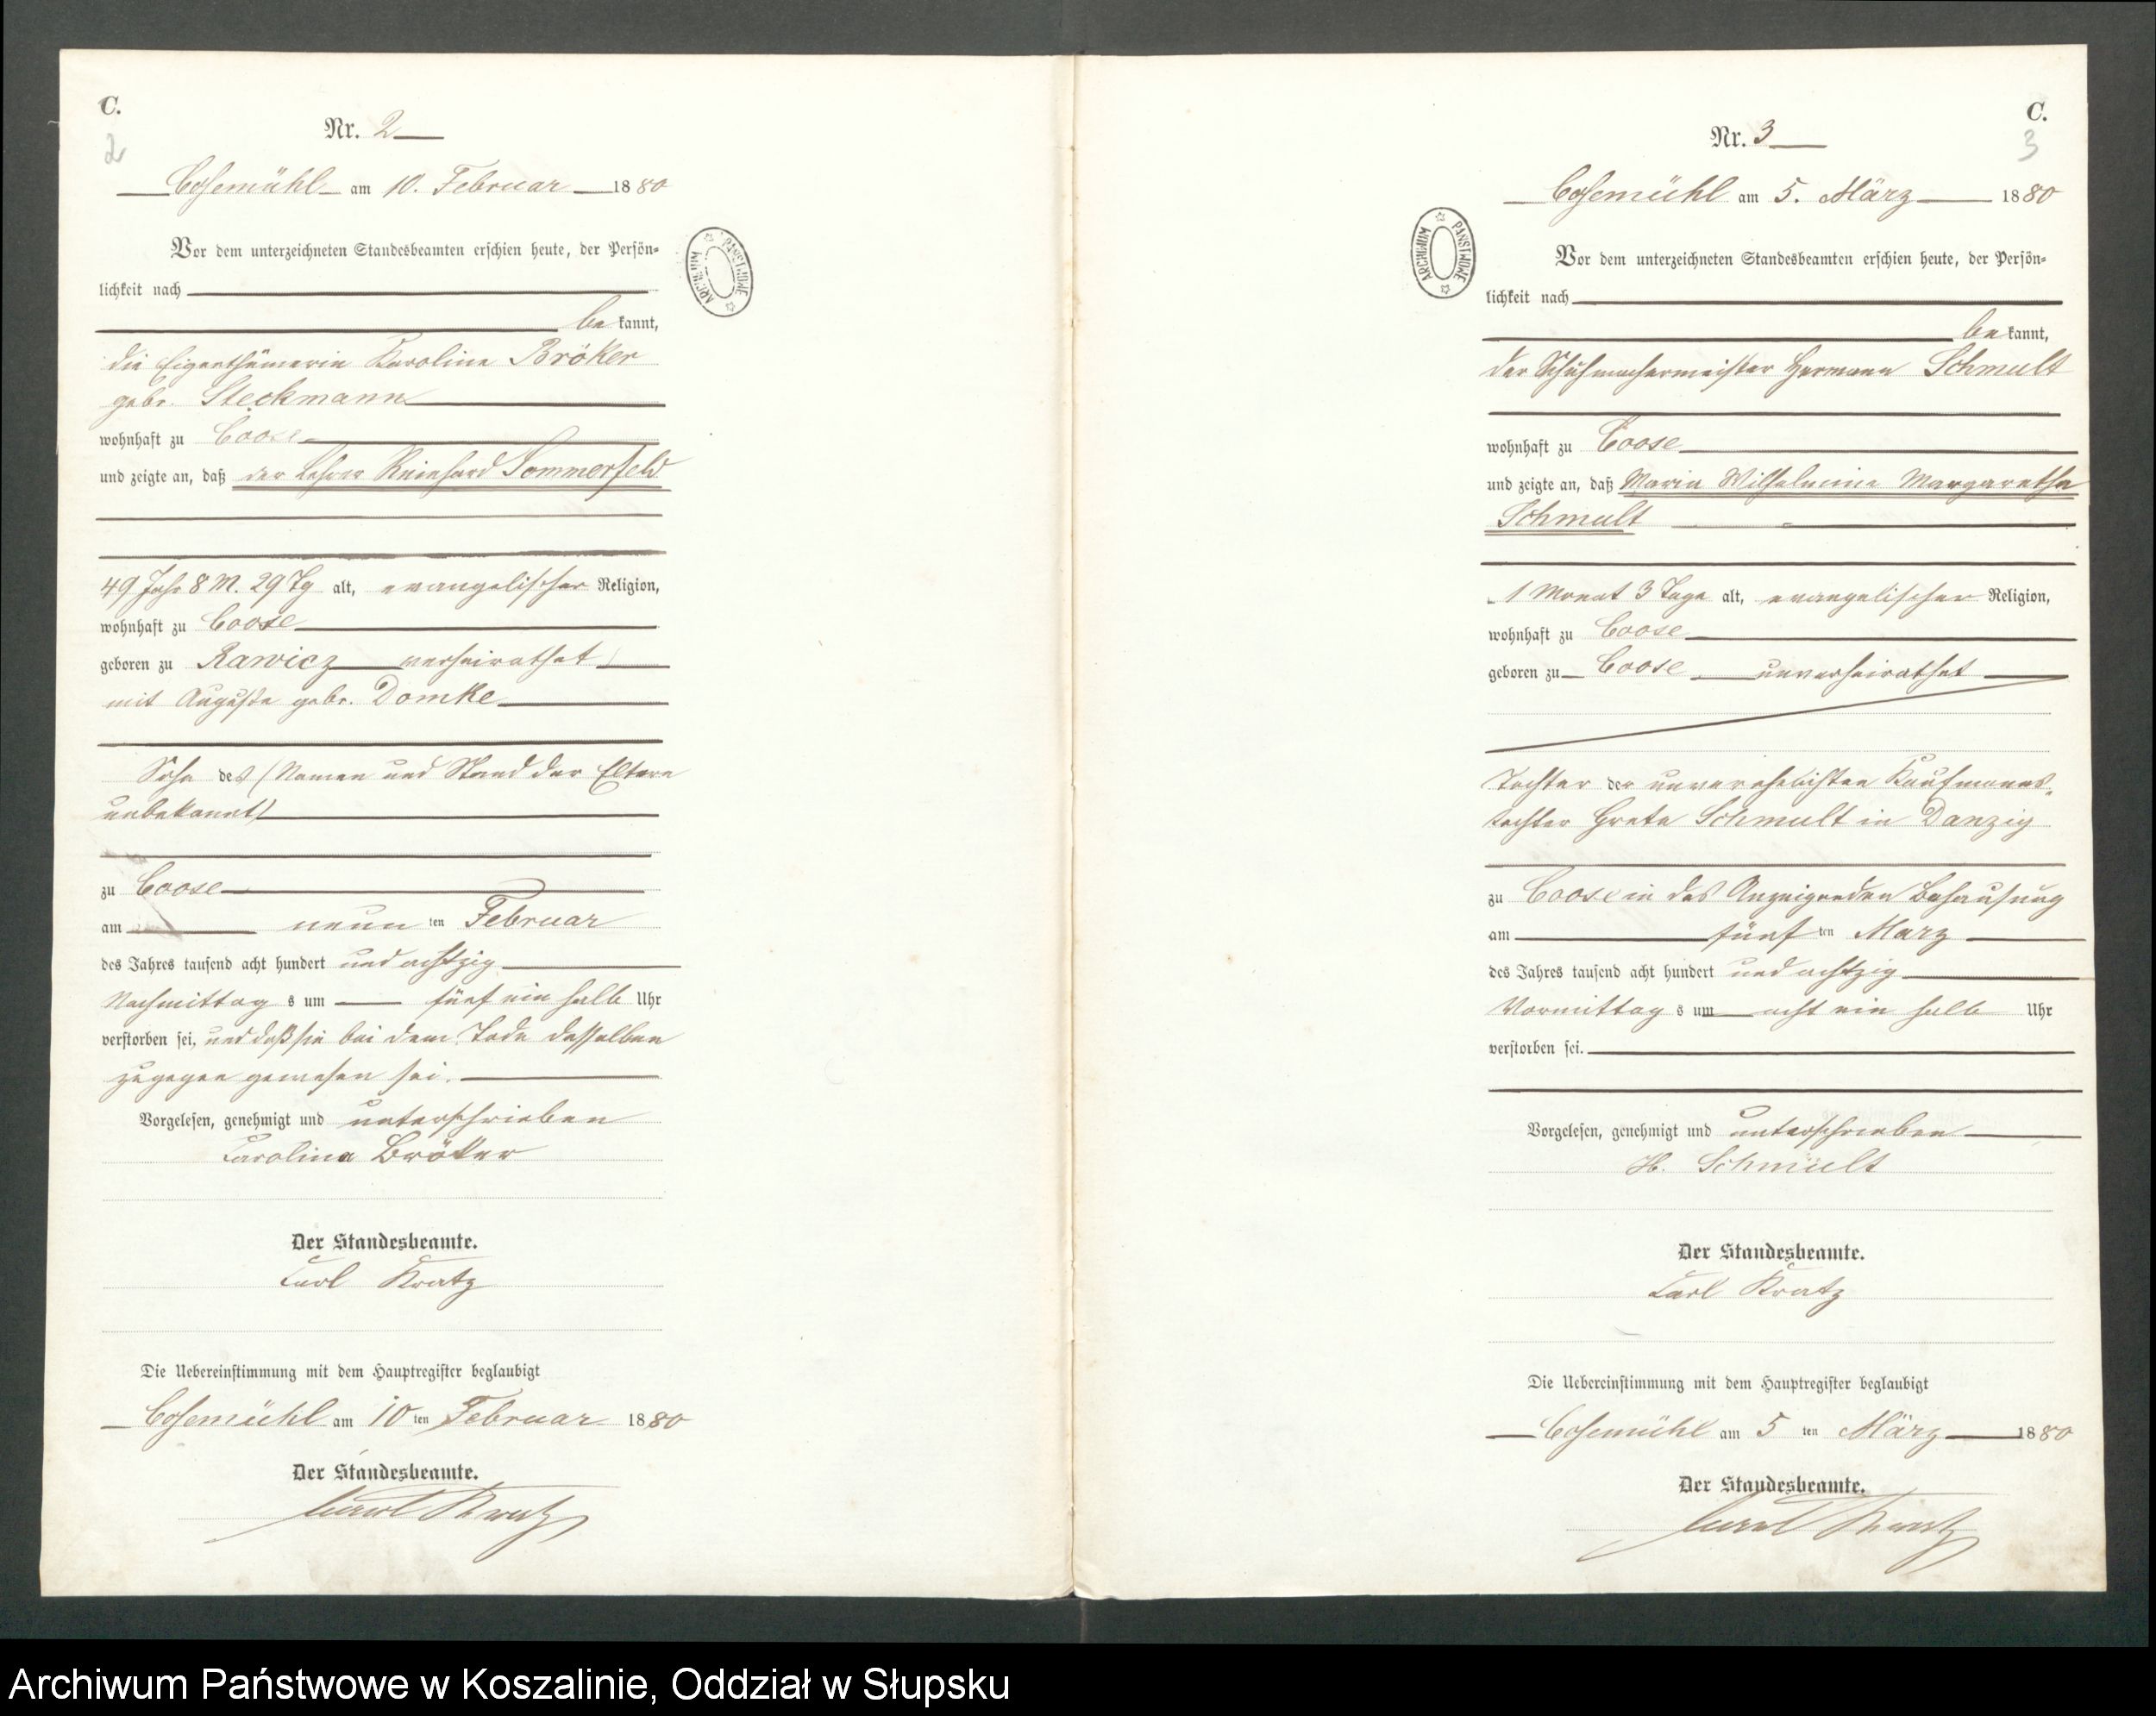 C.
2
Nr. 2
Cosemühl am 10. Februar 1880
Vor dem unterzeichneten Standesbeamten erschien heute, der Persön-
lichkeit nach
ARCHIWUM PAŃSTWOWE
be kannt,
die Eigenthümerin Karoline Bröker
gebr. Steckmann
wohnhaft zu Coose
und zeigte an, daß der Lehrer Reinhard Sommerfeld
49 Jahr 8 M. 29 Tg alt, evangelischer Religion,
wohnhaft zu Coose
geboren zu Rawicz verheirathet
mit Auguste gebr. Domke
Sohn des (Namen und Stand der Eltern
unbekannt)
zu Coose
am neun ten Februar
des Jahres tausend acht hundert und achtzig
Nachmittag s um fünf ein halb Uhr
verstorben sei, und daß sie bei dem Tode desselben
zugegen gewesen sei.
Vorgelesen, genehmigt und unterschrieben
Karoline Bröker
Der Standesbeamte.
Carl Kratz
Die Uebereinstimmung mit dem Hauptregister beglaubigt
Cosemühl am 10 ten Februar 1880
Der Standesbeamte.
Carl Kratz
C.
3
Nr. 3
Cosemühl am 5. März 1880
ARCHIWUM PAŃSTWOWE
Vor dem unterzeichneten Standesbeamten erschien heute, der Persön-
lichkeit nach
be kannt,
der Schuhmachermeister Hermann Schmult
wohnhaft zu Coose
und zeigte an, daß Maria Wilhelmine Margaretha
Schmult
1 Monat 3 Tage alt, evangelischer Religion,
wohnhaft zu Coose
geboren zu Coose unverheirathet
Tochter der unverehelichten Kaufmanns-
tochter Grete Schmult in Danzig
zu Coose in des Anzeigenden Behausung
am fünf ten März
des Jahres tausend acht hundert und achtzig
Vormittag s um acht ein halb Uhr
verstorben sei.
Vorgelesen, genehmigt und unterschrieben
H. Schmult
Der Standesbeamte.
Carl Kratz
Die Uebereinstimmung mit dem Hauptregister beglaubigt
Cosemühl am 5 ten März 1880
Der Standesbeamte.
Carl Kratz
Archiwum Państwowe w Koszalinie, Oddział w Słupsku